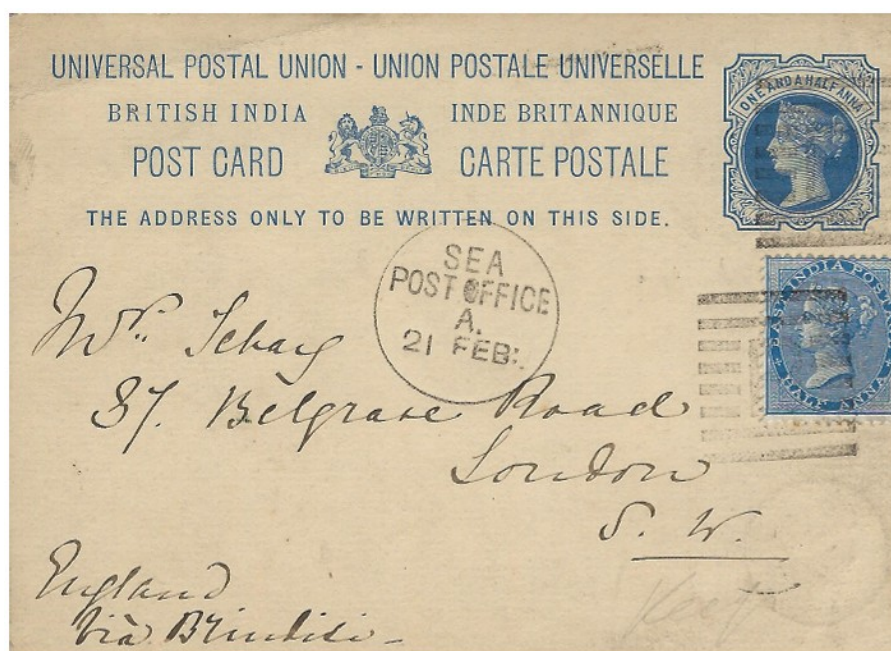 UNIVERSAL POSTAL UNION - UNION POSTALE UNIVERSELLE
BRITISH INDIA INDE BRITANNIQUE
POST CARD CARTE POSTALE
THE ADDRESS ONLY TO BE WRITTEN ON THIS SIDE.
ONE AND A HALF ANNA
SEA
POST OFFICE
A.
21 FEB:
EAST INDIA POST
HALF ANNA
Mrs. Scharf
87. Belgrave Road
London
S. W.
England
Viâ Brindisi
Keep